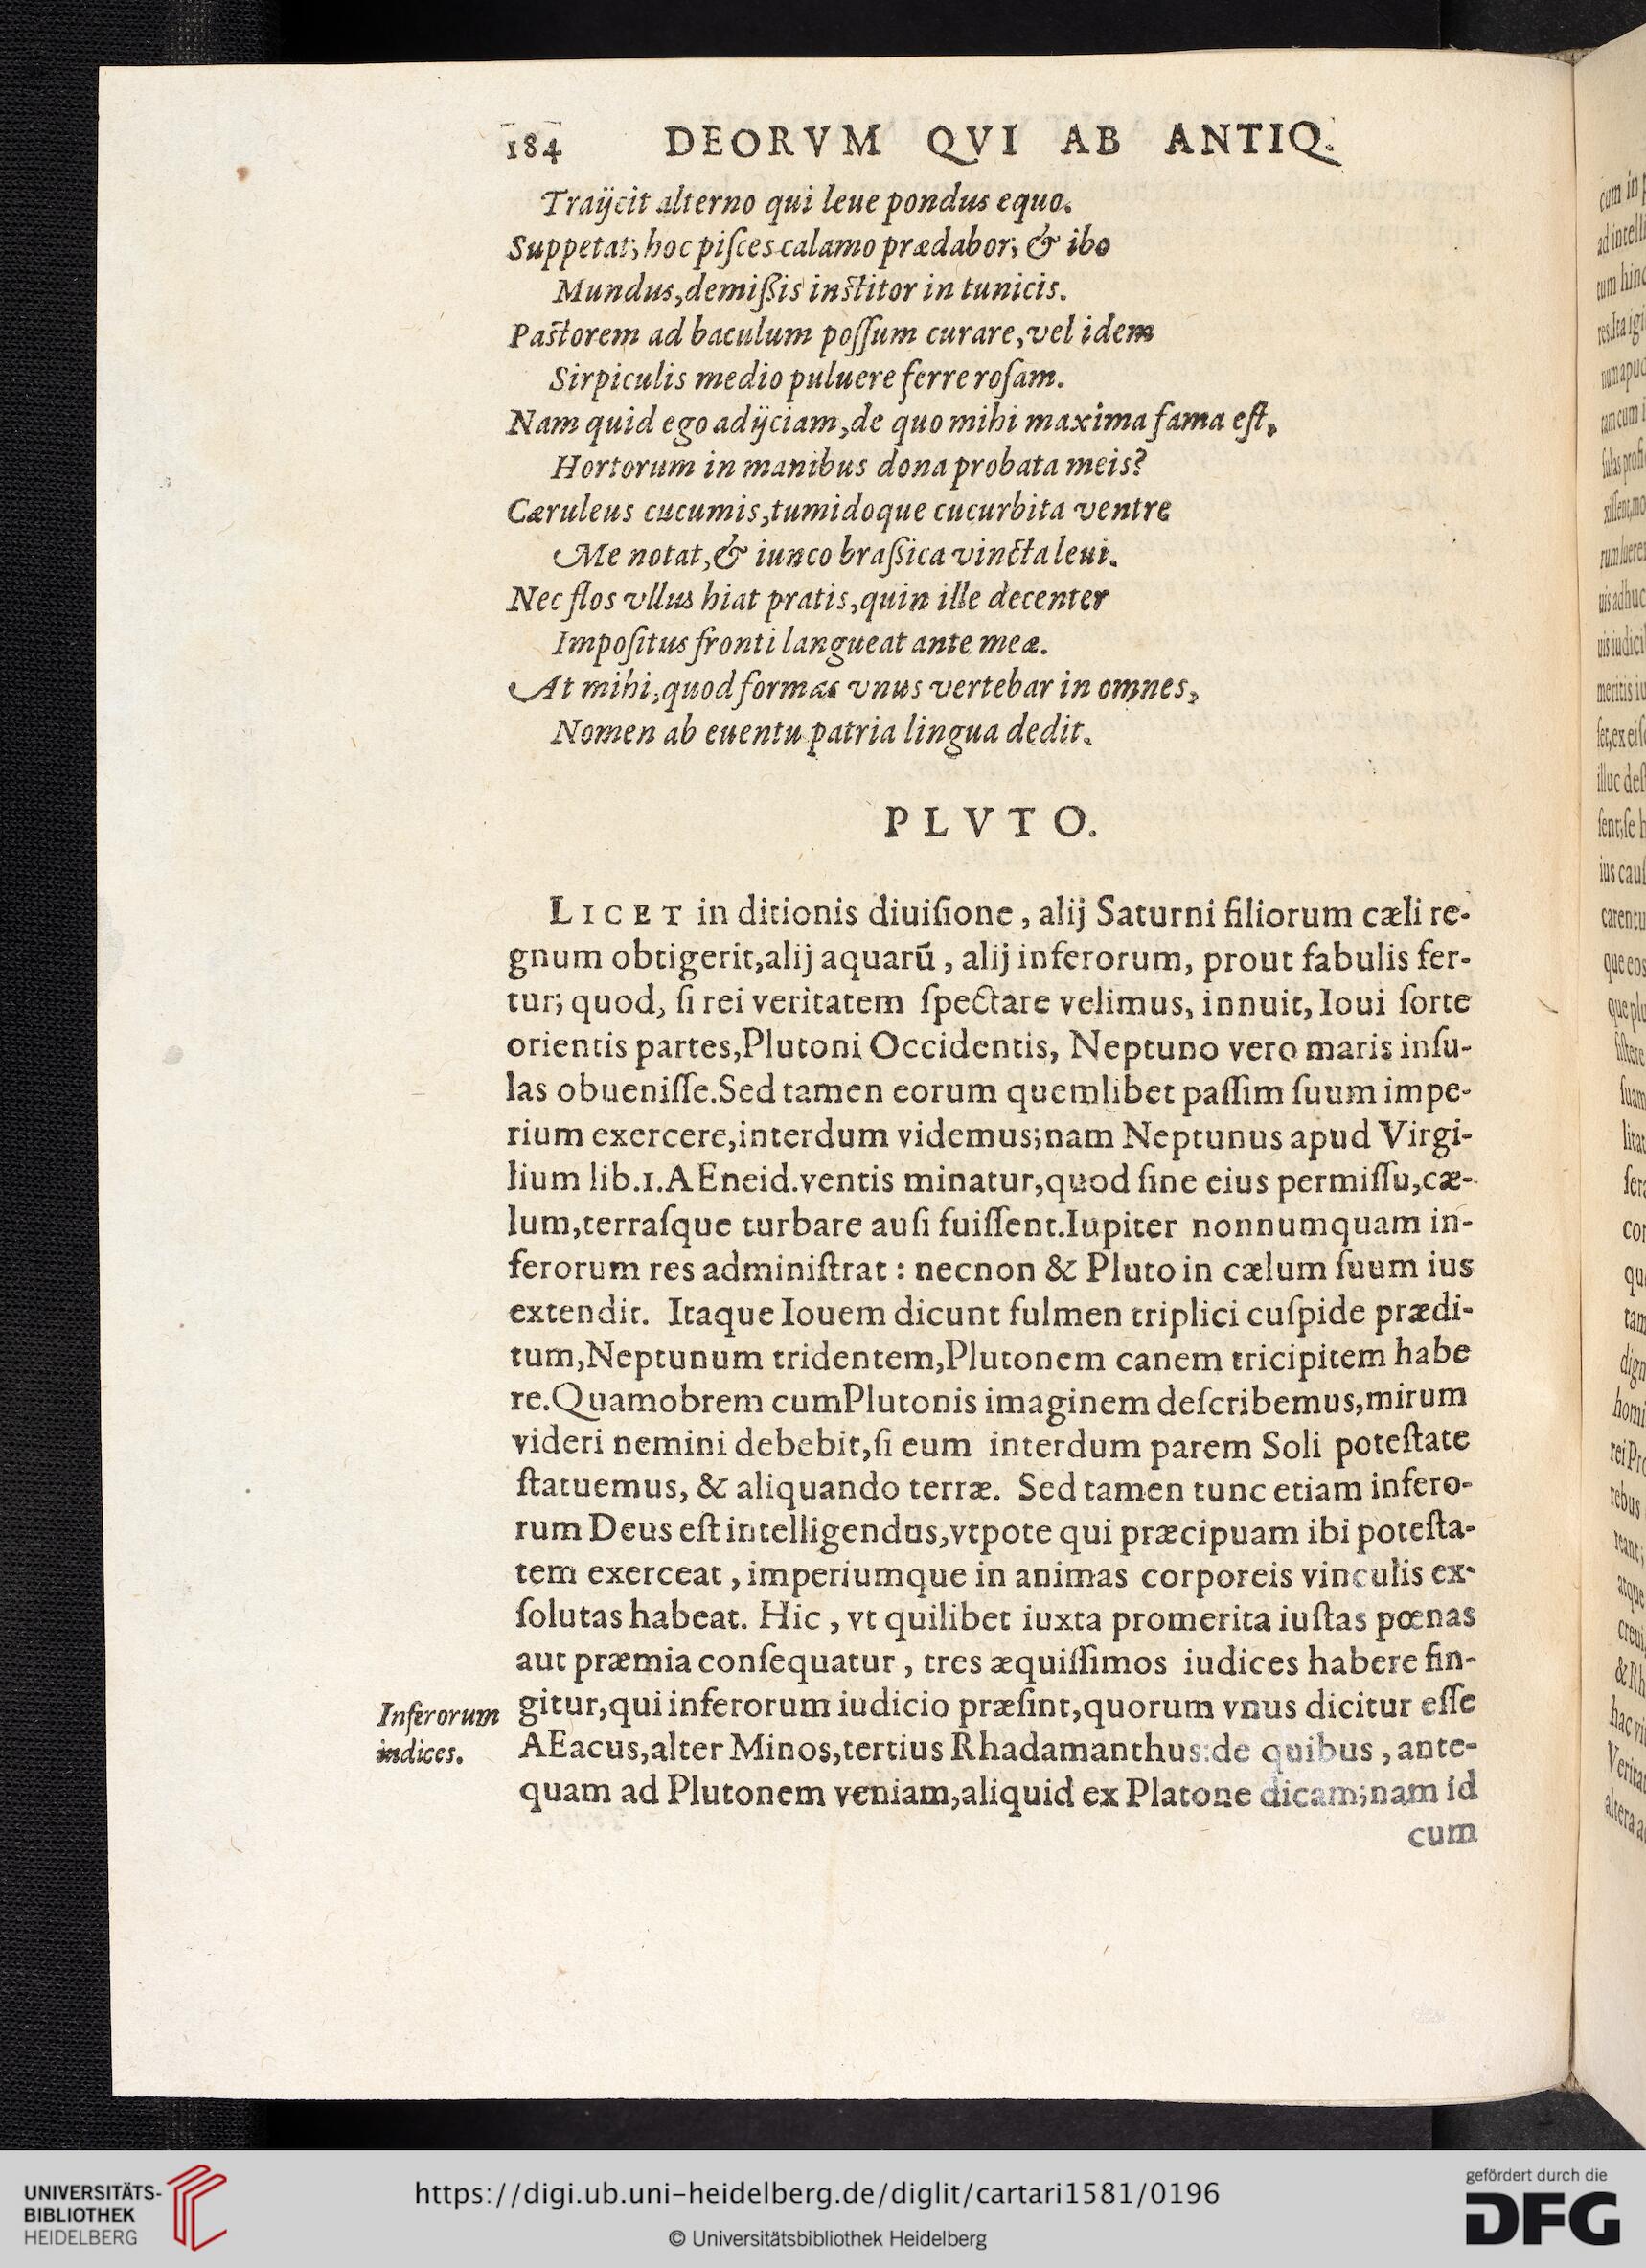 184 DEORVM QVI AB ANTIQ.
Traijcit alterno qui leue pondus equo.
Suppetat; hoc piſces calamo prædabor; & ibo
Mundus, demiſsis inſtitor in tunicis.
Paſtorem ad baculum poſſum curare, vel idem
Sirpiculis medio puluere ferre roſam.
Nam quid ego adijciam, de quo mihi maxima fama eſt,
Hortorum in manibus dona probata meis?
Cæruleus cucumis, tumidoque cucurbita ventre
Me notat, & iunco braſsica vincta leui.
Nec flos vllus hiat pratis, quin ille decenter
Impoſitus fronti langueat ante meæ.
At mihi, quod formas vnus vertebar in omnes,
Nomen ab euentu patria lingua dedit.
PLVTO.
LICET in ditionis diuiſione, alij Saturni filiorum cæli re-
gnum obtigerit, alij aquarū, alij inferorum, prout fabulis fer-
tur; quod, ſi rei veritatem ſpectare velimus, innuit, Ioui ſorte
orientis partes, Plutoni Occidentis, Neptuno vero maris inſu-
las obueniſſe. Sed tamen eorum quemlibet paſſim ſuum impe-
rium exercere, interdum videmus; nam Neptunus apud Virgi-
lium lib.1. AEneid. ventis minatur, quod ſine eius permiſſu, cæ-
lum, terraſque turbare auſi fuiſſent. Iupiter nonnumquam in-
ferorum res adminiſtrat: necnon & Pluto in cælum ſuum ius
extendit. Itaque Iouem dicunt fulmen triplici cuſpide prædi-
tum, Neptunum tridentem, Plutonem canem tricipitem habe
re. Quamobrem cum Plutonis imaginem deſcribemus, mirum
videri nemini debebit, ſi eum interdum parem Soli poteſtate
ſtatuemus, & aliquando terræ. Sed tamen tunc etiam infero-
rum Deus eſt intelligendus, vtpote qui præcipuam ibi poteſta-
tem exerceat, imperiumque in animas corporeis vinculis ex-
ſolutas habeat. Hic, vt quilibet iuxta promerita iuſtas pœnas
aut præmia conſequatur, tres æquiſſimos iudices habere fin-
gitur, qui inferorum iudicio præſint, quorum vnus dicitur eſſe
AEacus, alter Minos, tertius Rhadamanthus: de quibus, ante-
quam ad Plutonem veniam, aliquid ex Platone dicam; nam id
cum
Inferorum
iudices.
UNIVERSITÄTS-
BIBLIOTHEK
HEIDELBERG
https://digi.ub.uni-heidelberg.de/diglit/cartari1581/0196
© Universitätsbibliothek Heidelberg
gefördert durch die
DFG